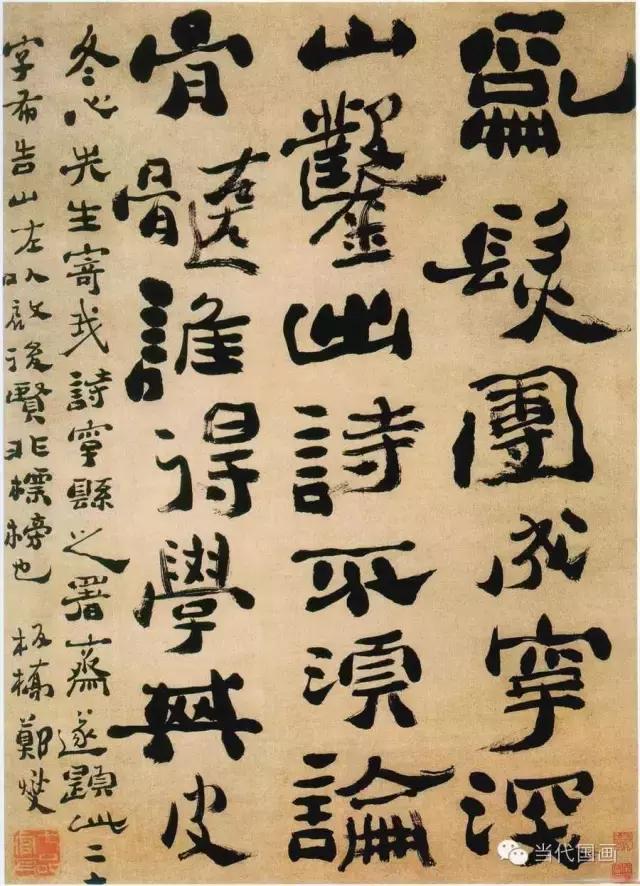 亂髮團成字深
山鑿出詩不須論
骨髓誰得學其皮
冬心先生寄我詩字縣之署齋遂題此二十
字布告山左以啟後賢非標榜也 板橋鄭燮
当代国画